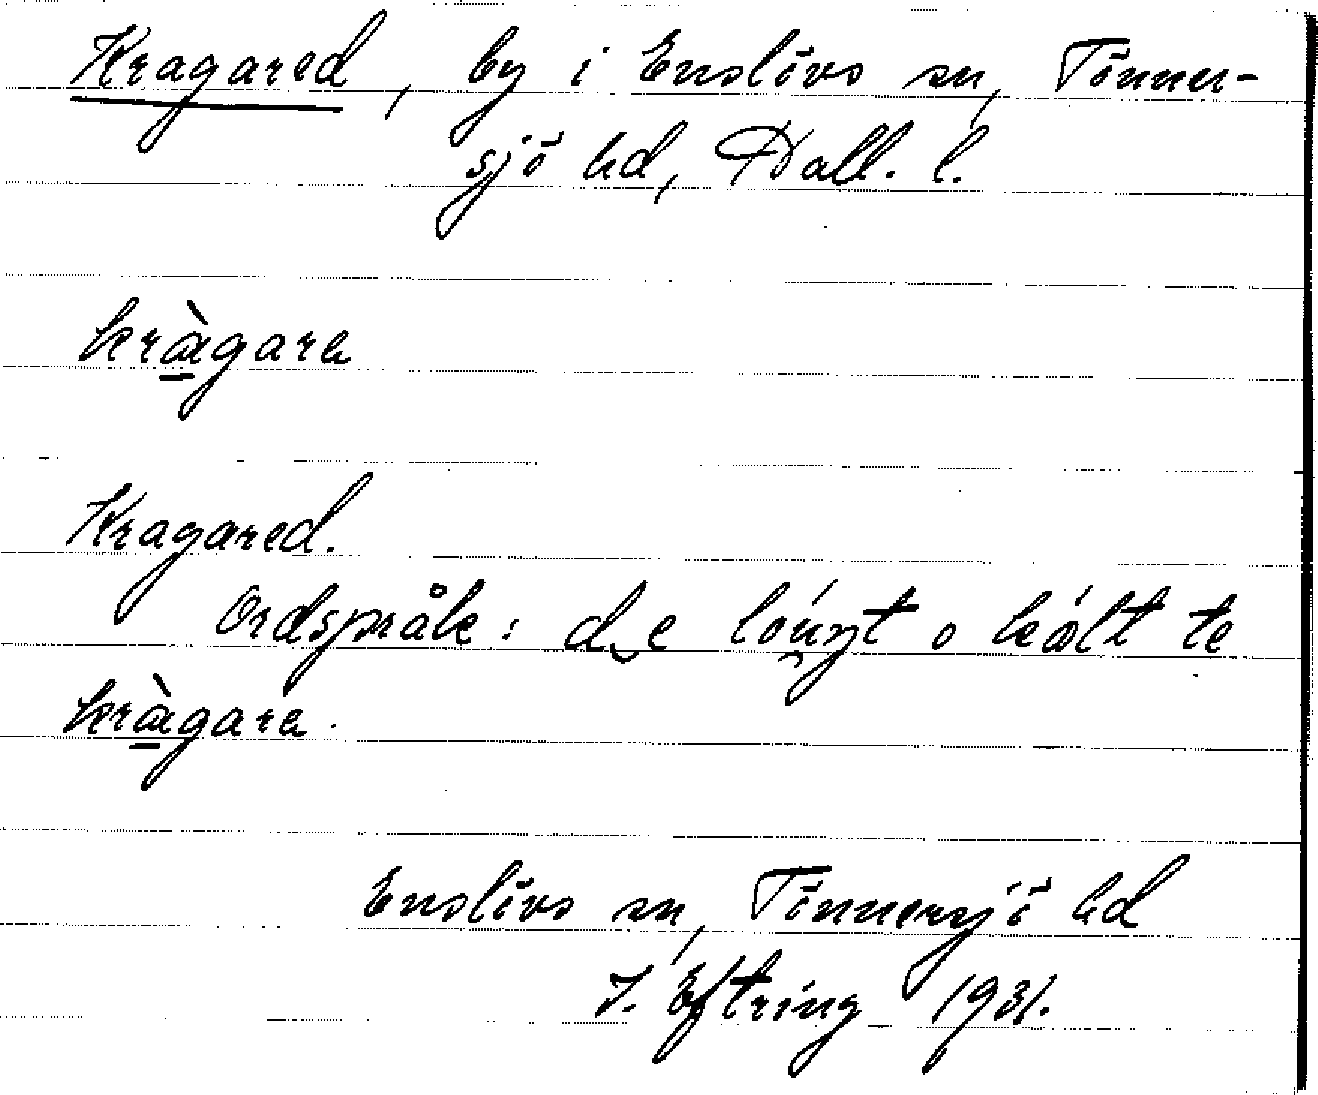 Kragared, by i Enslövs sn, Tönner-
sjö hd, Hall. l.
kràgara
Kragared.
Ordspråk: d_e lóuŋt o kált te
kràgara.
Enslövs sn, Tönnersjö hd
J. Eftring 1931.